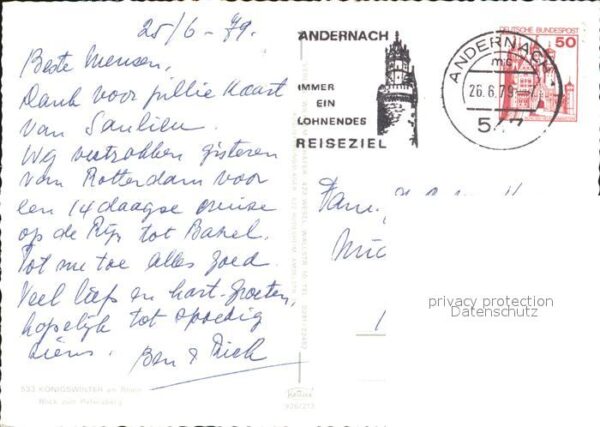 25/6-79.
Beste mensen,
Dank voor jullie kaart
van Saulieu.
Wij vertrokken gisteren
van Rotterdam voor
een 14 daagse cruise
op de Rijn tot Basel.
Tot nu toe alles goed.
Veel liefs en hart. groeten,
hopelijk tot spoedig
Ben & Dick
533 KÖNIGSWINTER am Rhein
Blick zum Petersberg
926/213
ANDERNACH
IMMER
EIN
LOHNENDES
REISEZIEL
ANDERNACH
mc
26.6.79
DEUTSCHE BUNDESPOST
50
Fam.
privacy protection
Datenschutz